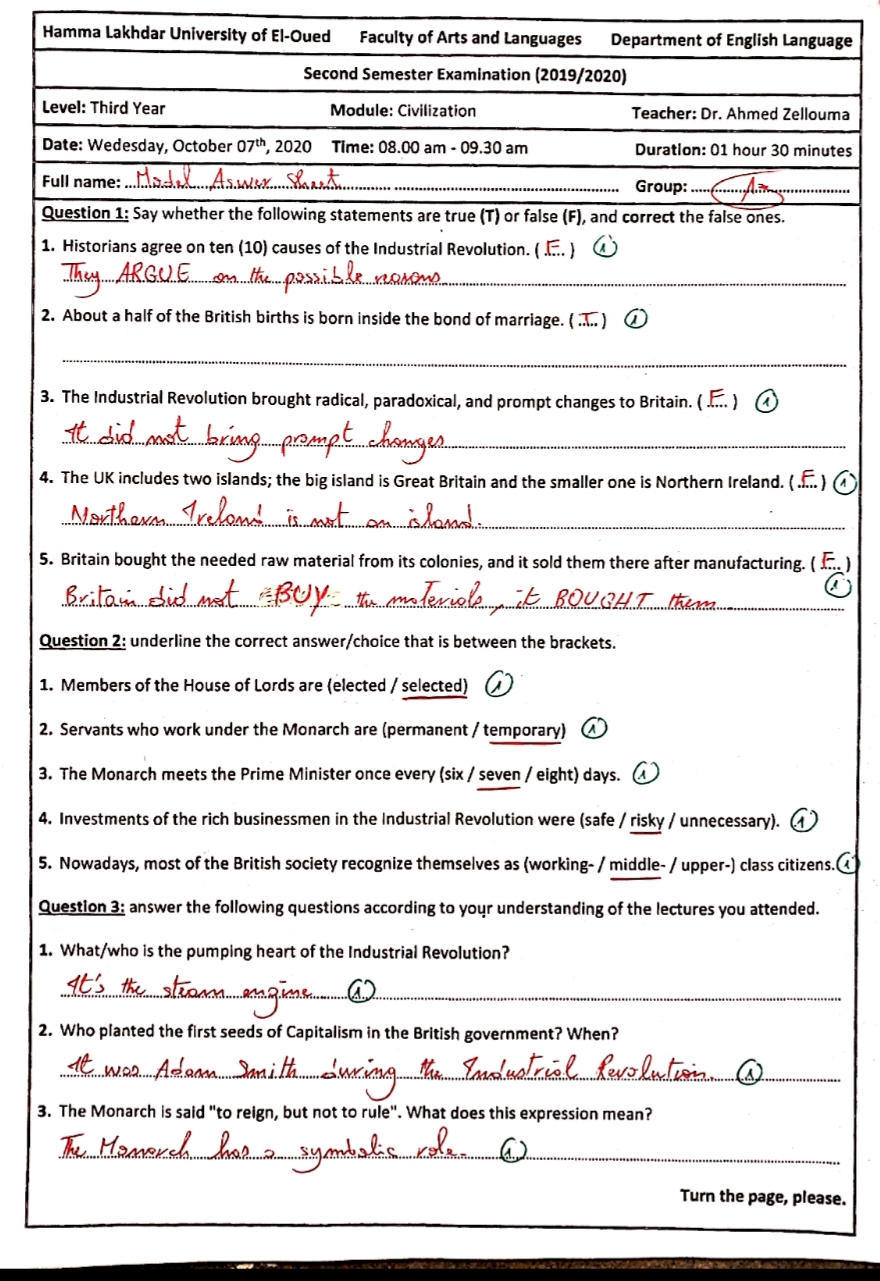 Hamma Lakhdar University of El-Oued Faculty of Arts and Languages Department of English Language
Second Semester Examination (2019/2020)
Level: Third Year Module: Civilization Teacher: Dr. Ahmed Zellouma
Date: Wedesday, October 07th, 2020 Time: 08.00 am - 09.30 am Duration: 01 hour 30 minutes
Full name: Model Aswer Sheet Group:
Question 1: Say whether the following statements are true (T) or false (F), and correct the false ones.
1. Historians agree on ten (10) causes of the Industrial Revolution. ( F ) 1
They ARGUE on the possible reasons
2. About a half of the British births is born inside the bond of marriage. ( T ) 1
3. The Industrial Revolution brought radical, paradoxical, and prompt changes to Britain. ( F ) 1
It did not bring prompt changes
4. The UK includes two islands; the big island is Great Britain and the smaller one is Northern Ireland. ( F ) 1
Northern Ireland is not an island.
5. Britain bought the needed raw material from its colonies, and it sold them there after manufacturing. ( F ) 1
Britain did not BUY the materials, it BOUGHT them
Question 2: underline the correct answer/choice that is between the brackets.
1. Members of the House of Lords are (elected / selected) 1
2. Servants who work under the Monarch are (permanent / temporary) 1
3. The Monarch meets the Prime Minister once every (six / seven / eight) days. 1
4. Investments of the rich businessmen in the Industrial Revolution were (safe / risky / unnecessary). 1
5. Nowadays, most of the British society recognize themselves as (working- / middle- / upper-) class citizens. 1
Question 3: answer the following questions according to your understanding of the lectures you attended.
1. What/who is the pumping heart of the Industrial Revolution?
It's the steam engine 1
2. Who planted the first seeds of Capitalism in the British government? When?
It was Adam Smith during the Industrial Revolution. 1
3. The Monarch is said "to reign, but not to rule". What does this expression mean?
The Monarch has a symbolic role. 1
Turn the page, please.